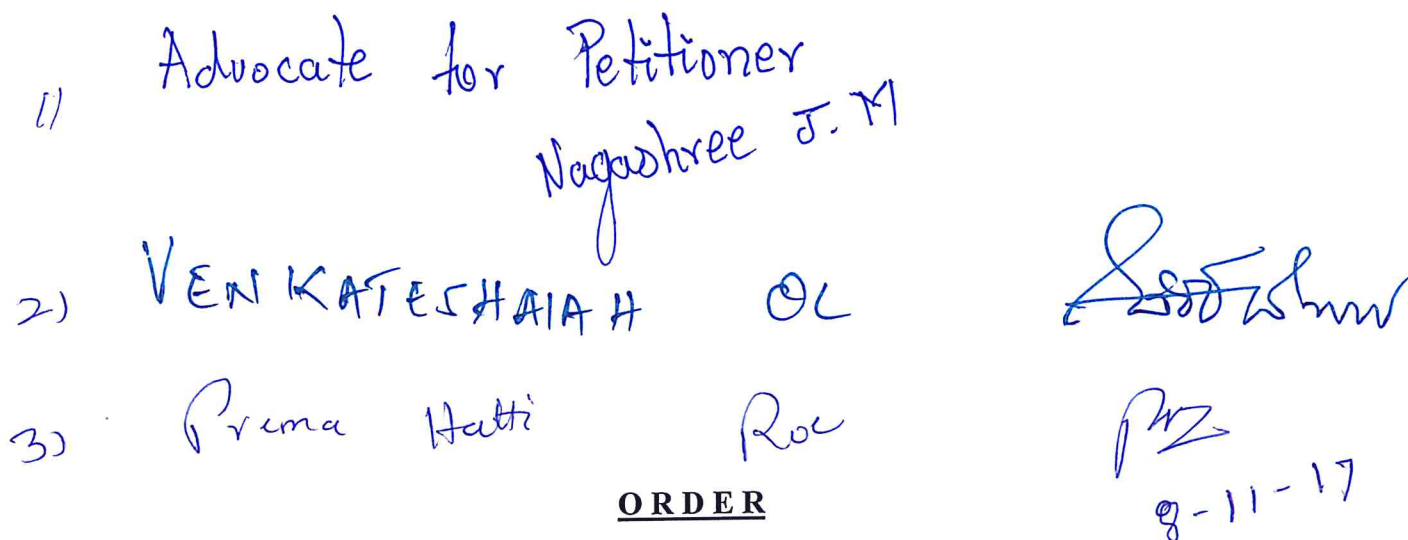 1) Advocate for Petitioner
Nagashree J. M
2) VENKATESHAIAH OL
3) Prema Hatti RoC
8-11-17
ORDER